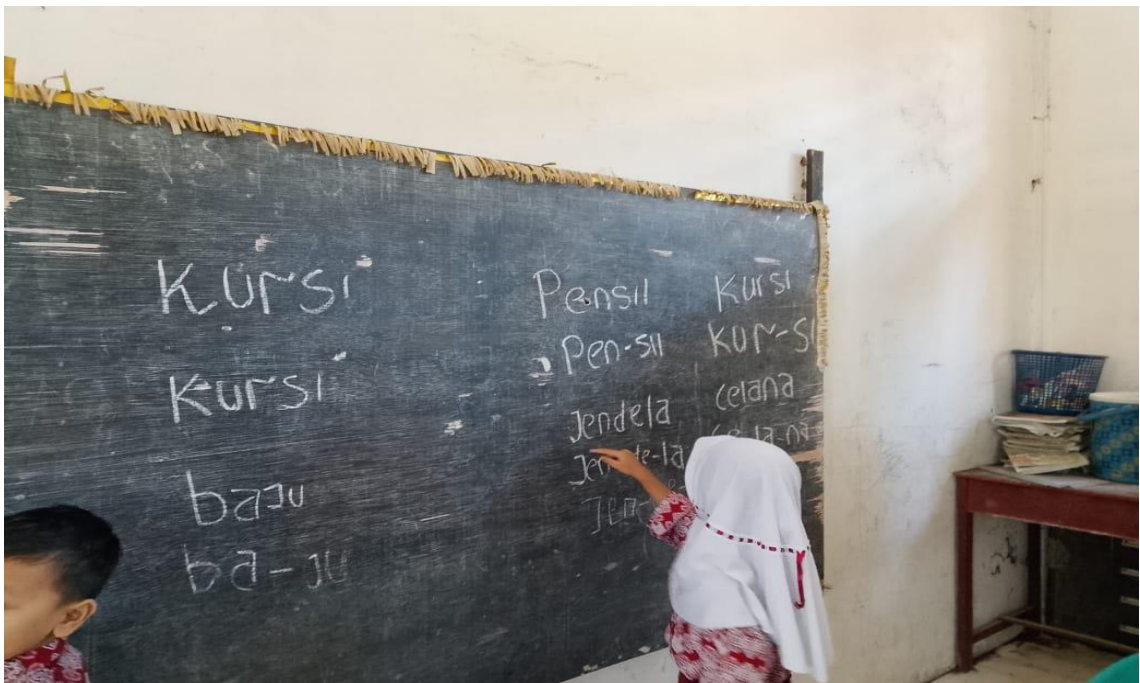 Kursi
Kursi
baju
ba-ju
Pensil
Pen-sil
Jendela
Kursi
Kur-si
Celana